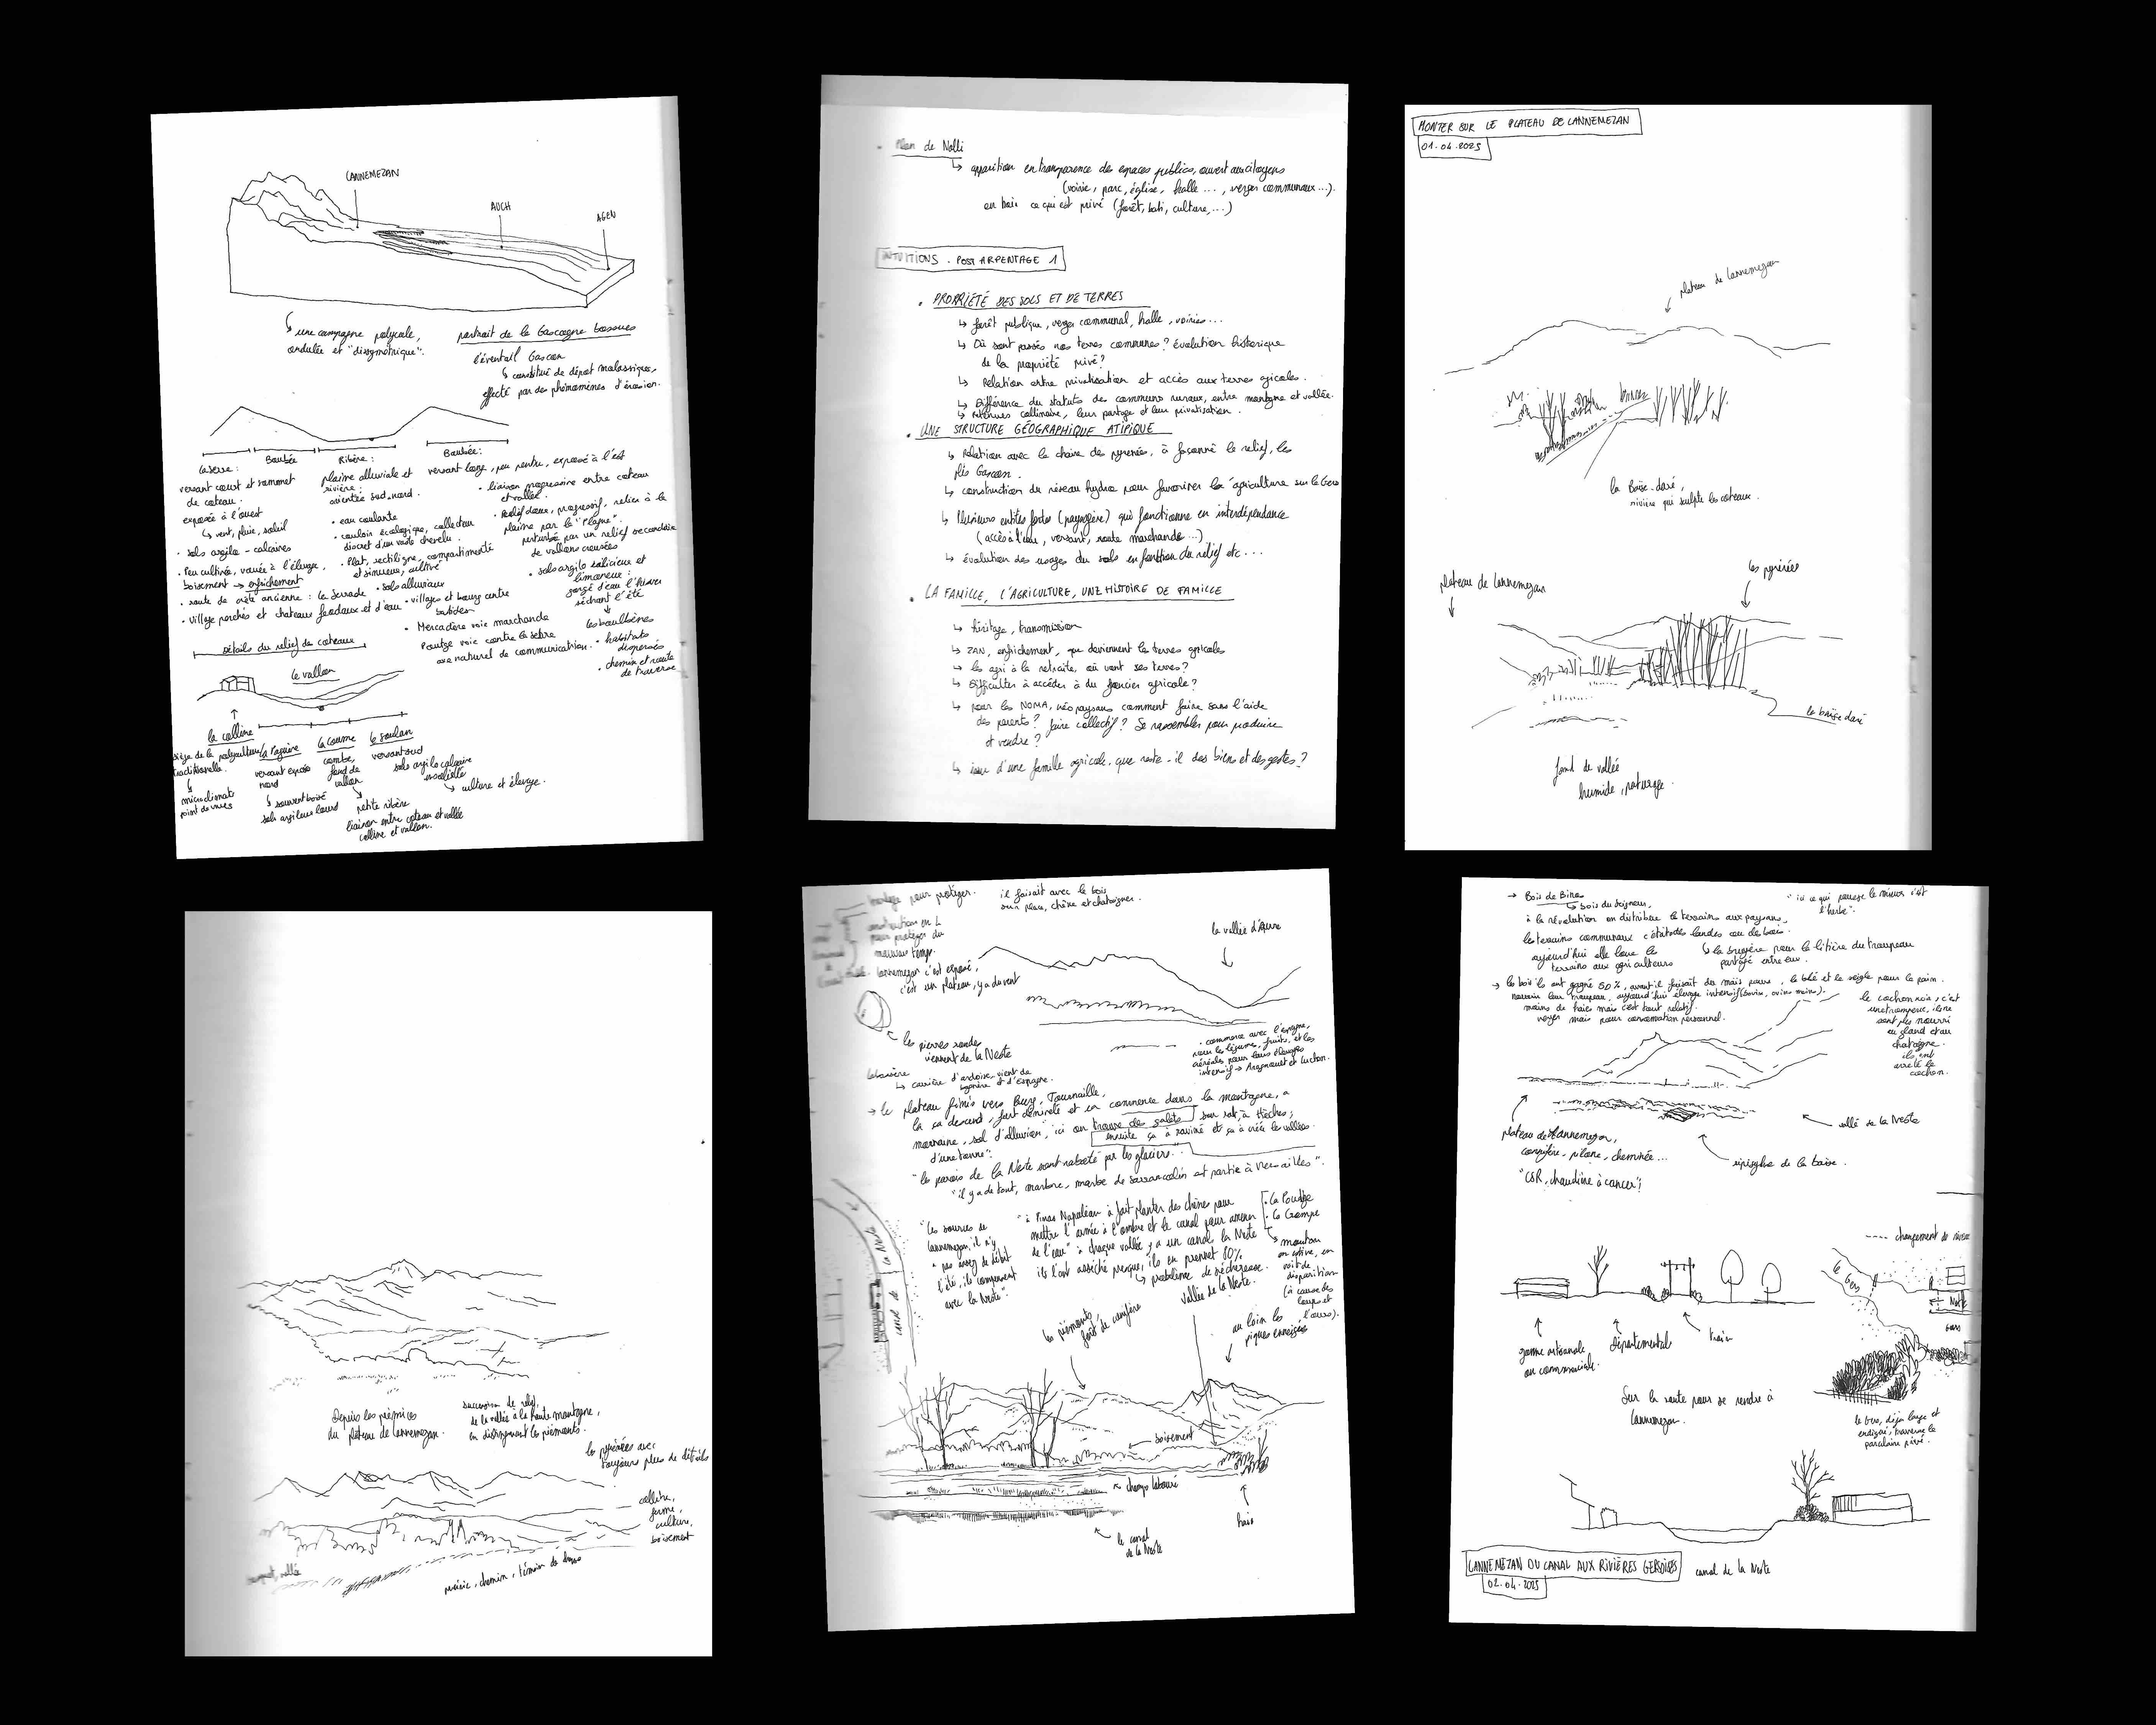 LANNEMEZAN
AUCH
AGEN
une campagne
ondulée et "dissymétrique".
portrait de la Gascogne bossues
l'éventail Gascon
constitué de dépot malassiques,
effecté par des phénomènes d'érosion.
la serre :
Boubée
Ribère :
Boubée :
versant court et sommet
de coteau.
exposée à l'ouest
vent, pluie, soleil
• sols argilo-calcaires
• Peu cultivée, vouée à l'élevage,
boisement → enfrichement
• route de crête ancienne : la Serrade
• village perchés et chateaux féodaux et d'eau
plaine alluviale et
rivière :
orientée sud-nord.
• eau coulante
• couloir écologique, collecteur
discret d'un vaste chevelu.
• Plat, rectiligne, compartimenté
et sinueux, cultivé
• sols alluviaux
• villages et bourg centre
bastides
• Mercadère voie marchande
Poutge voie contre la serre
axe naturel de communication.
versant large, peu pentu, exposé à l'est
• liaison progressive entre coteau
et vallée.
• Relief doux, progressif, relier à la
plaine par la "Plagne".
perturbée par un relief secondaire
de vallons creusées
• sols argilo silicieux et
limoneux :
gorgé d'eau l'hiver
séchant l'été
les boulbènes
• habitats
dispersés
• chemin et route
de traverse
Détails du relief de coteaux
le vallon
la colline
siège de la polyculture
traditionnelle.
microclimats
point de vues
la Paguère
versant exposé
nord
souvent boisé
sols argileux lourd
la coume
combe,
fond de
vallon
petite ribère
liaison entre coteau et vallée
colline et vallon.
le soulan
versant sud
sols argilo calcaire
ensoleillé
culture et élevage.
• Plan de Nolli
apparition en transparence des espaces publics, ouvert aux citoyens
(voirie, parc, église, halle ..., verger communaux ...).
en noir ce qui est privé (forêt, bati, culture, ...)
INTUITIONS . POST ARPENTAGE 1
• PROPRIÉTÉ DES SOLS ET DE TERRES
↳ forêt publique, verger communal, halle, voiries...
↳ Où sont passés nos terres communes ? évolution historique
de la propriété privé ?
↳ Relation entre privatisation et accès aux terres agricoles.
↳ Différence du statuts des communs ruraux, entre montagne et vallée.
↳ Retenues collinaire, leur partage et leur privatisation.
• UNE STRUCTURE GÉOGRAPHIQUE ATIPIQUE
↳ Relation avec la chaine des pyrenées, à façonné le relief, les
plis Gascon.
↳ construction du réseau hydro pour favoriser la l'agriculture sur le Gers
↳ Plusieurs entités fortes (paysagère) qui fonctionne en interdépendance
(accès à l'eau, versant, route marchande ...)
↳ évolution des usages du sols en fonction du relief etc...
• LA FAMILLE, L'AGRICULTURE, UNE HISTOIRE DE FAMILLE
↳ héritage, transmission
↳ ZAN, enfrichement, que deviennent les terres agricoles
↳ les agri à la retraite, où vont ses terres ?
↳ Difficultés à accéder à du foncier agricole ?
↳ pour les NOMA, néo paysans comment faire sans l'aide
des parents ? faire collectif ? Se rassembler pour produire
et vendre ?
↳ issu d'une famille agricole, que reste-il des biens et des gestes ?
MONTER SUR LE PLATEAU DE LANNEMEZAN
01.04.2025
plateau de Lannemezan
la Baïse-darré,
rivière qui sculpte les coteaux.
plateau de Lannemezan
les pyrénées
la baïse darré
fond de vallée
humide, paturage.
Depuis les prémices
du plateau de Lannemezan.
succession de relief,
de la vallée à la haute montagne,
en distinguant les piémonts.
les pyrénées avec
toujours plus de détails
colline,
ferme,
culture,
boisement
prairie, chemin,
pour protéger.
construction en L
pour protéger du
mauvais temps.
il faisait avec le bois
chêne et chataigner.
Lannemezan c'est exposé,
c'est un plateau, y a du vent
la vallée d'Aure
les pierres rondes
viennent de la Neste
↳ carrière d'ardoise, vient de
et d'espagne.
• commerce avec l'espagne,
pour les légumes, fruits, et les
céréales pour leurs élevages
intensif →
→ le plateau finis vers Burg, Tournaille,
là ça descend, fort dénivelé et on commence dans la montagne, a
morraine, sol d'alluvion", ici on trouve des galets sur sol, à Hèches,
d'une tonne".
ensuite ça à raviné et ça à créée les vallées.
"les parois de la Neste sont raboté par les glaciers".
"il y a de tout, marbre, marbre de sarrancolin est partie à Versailles".
la Neste
canal de
"Les sources de
Lannemezan, il n'y
a pas assez de débit
l'été, ils compensent
avec la Neste".
"à Pinas Napoléon à fait planter des chênes pour
mettre l'armée à l'ombre et le canal pour amener
de l'eau" à chaque vallée y a un canal la Neste
ils l'ont asséché presque, ils en prennent 80%
↳ problème de sécheresse.
• la Poudge
mouton
en estive, en
voit de
disparition
(à cause des
loups et
l'ours).
les piémonts
forêt de conifère
vallée de la Neste.
au loin les
piques enneigées
boisement
champs labouré
haie
le canal
de la Neste
→ Bois de Bine
↳ bois du seigneur,
à la révolution on distribue le terrains aux paysans,
les terrains communaux c'était des landes ou des bois.
aujourd'hui elle loue les
terrains aux agriculteurs
↳ la bruyère pour la litière du troupeau
partagé entre eux.
"ici ce qui pousse le mieux c'est
l'herbe".
→ les bois ils ont gagné 50%, avant il faisait du maïs pour
nourrir leur troupeau, aujourd'hui élevage intensif (bovin, ovins moins).
moins de haies mais c'est tout relatif.
verger mais pour consommation personnel.
, le blé et le seigle pour le pain.
le cochon noir, c'est
une tromperie, ils ne
sont plus nourri
au gland et au
chataigne.
ils ont
arrêté le
cochon.
plateau de Lannemezan,
conifère, pilone, cheminée...
"CSR, chaudière à cancer"!
vallé de la Neste
ripisylve de la baïse.
---- changement de
le Gers
Neste
zone artisanale
ou commerciale.
départemental
train
Sur la route pour se rendre à
Lannemezan.
le Gers, déjà large et
endigué, traverse le
parcellaire privé.
LANNEMEZAN DU CANAL AUX RIVIÈRES GERSOISES
02.04.2025
canal de la Neste